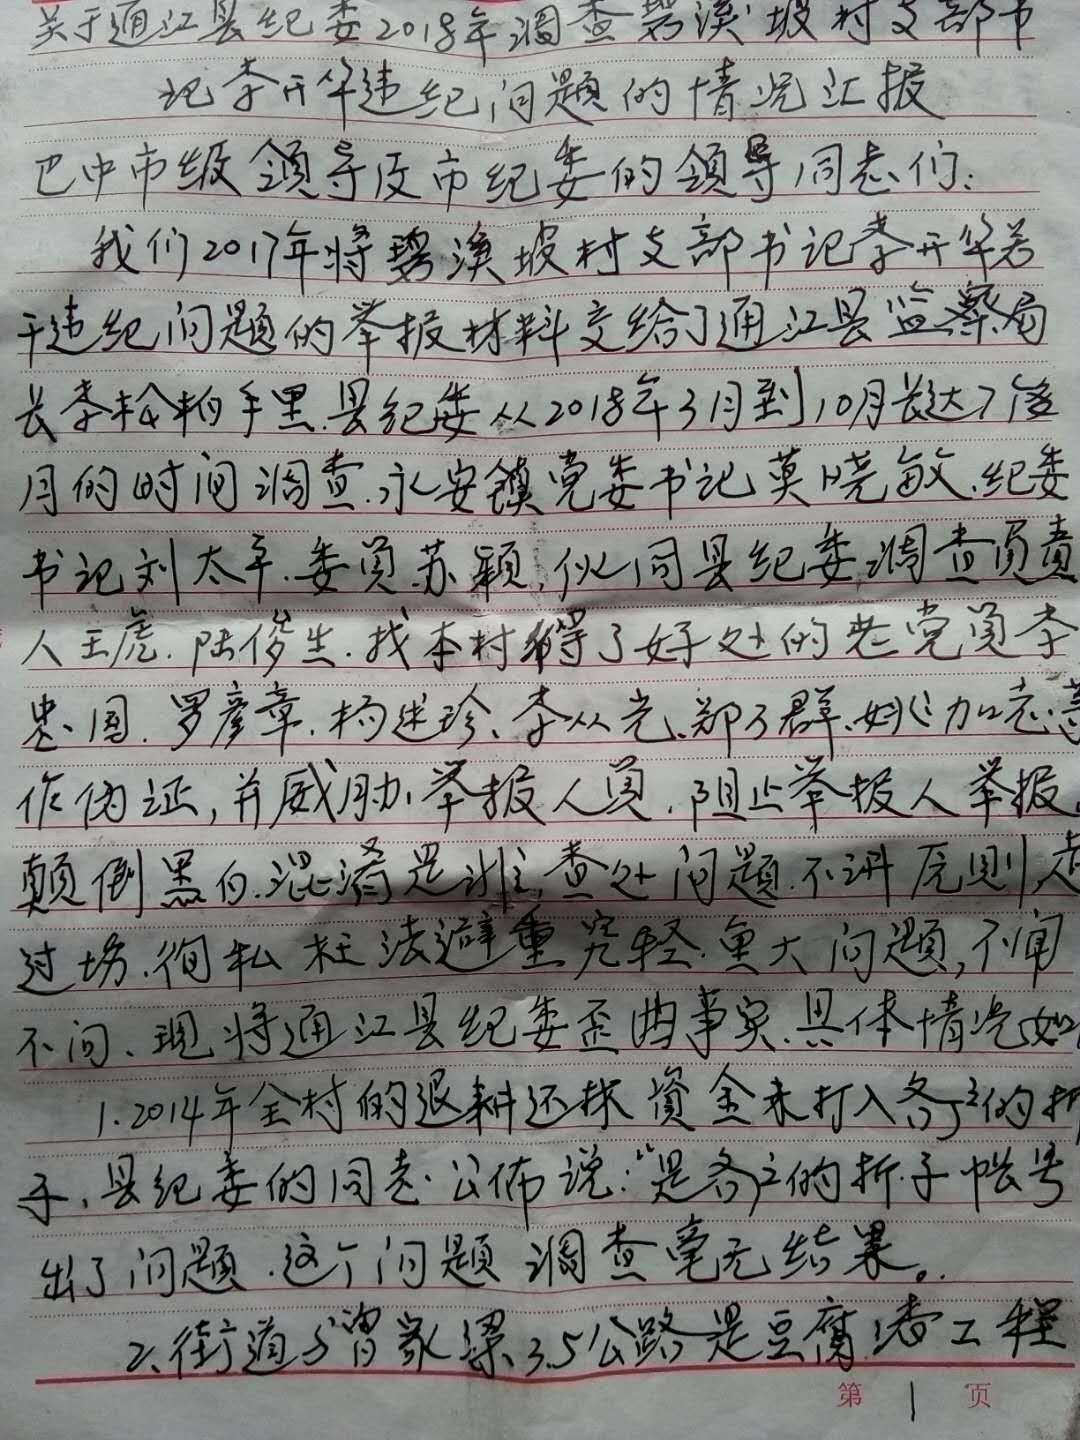 关于通江县纪委2018年调查碧溪坡村支部书
记李开华违纪问题的情况汇报
巴中市级领导及市纪委的领导同志们:
我们2017年将碧溪坡村支部书记李开华若
干违纪问题的举报材料交给了通江县监察局
长李松柏手里.县纪委从2018年3月到10月长达7个
月的时间调查.永安镇党委书记莫晓敏、纪委
书记刘太平.委员苏颖,伙同县纪委调查负责
人王虎.陆俊生.找本村得了好处的老党员李
忠国.罗彦章.杨述珍、李从光、郑子群、姚加志等
作伪证,并威胁举报人员.阻止举报人举报.
颠倒黑白.混淆是非,查处问题.不讲原则,走
过场.徇私枉法避重究轻.重大问题,不闻
不问、现将通江县纪委歪曲事实.具体情况如
1.2014年全村的退耕还林资金未打入各户的折
子、县纪委的同志公佈说:“是各户的折子帐号
出了问题.这个问题调查毫无结果。
2、街道与曾家梁3.5公路是豆腐渣工程
第 1 页